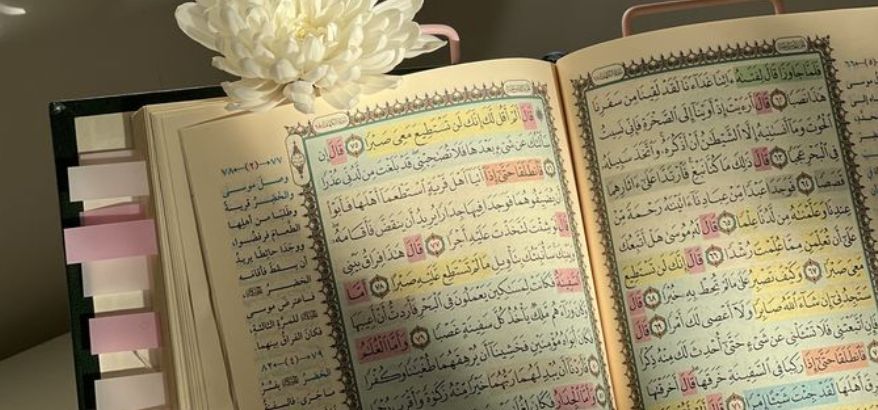 ﴿ قَالَ أَلَمْ أَقُل لَّكَ إِنَّكَ لَن تَسْتَطِيعَ مَعِيَ صَبْرًا ٧٥ قَالَ إِن
سَأَلْتُكَ عَن شَيْءٍ بَعْدَهَا فَلَا تُصَٰحِبْنِي قَدْ بَلَغْتَ مِن لَّدُنِّي عُذْرًا
٧٦ فَٱنطَلَقَا حَتَّىٰٓ إِذَآ أَتَيَآ أَهْلَ قَرْيَةٍ ٱسْتَطْعَمَآ أَهْلَهَا فَأَبَوْا۟
أَن يُضَيِّفُوهُمَا فَوَجَدَا فِيهَا جِدَارًا يُرِيدُ أَن يَنقَضَّ فَأَقَامَهُۥ
قَالَ لَوْ شِئْتَ لَتَّخَذْتَ عَلَيْهِ أَجْرًا ٧٧ قَالَ هَٰذَا فِرَاقُ بَيْنِي
وَبَيْنِكَ سَأُنَبِّئُكَ بِتَأْوِيلِ مَا لَمْ تَسْتَطِع عَّلَيْهِ صَبْرًا ٧٨ أَمَّا
ٱلسَّفِينَةُ فَكَانَتْ لِمَسَٰكِينَ يَعْمَلُونَ فِي ٱلْبَحْرِ فَأَرَدتُّ أَنْ أَعِيبَهَا
وَكَانَ وَرَآءَهُم مَّلِكٌ يَأْخُذُ كُلَّ سَفِينَةٍ غَصْبًا ٧٩ وَأَمَّا ٱلْغُلَٰمُ
فَكَانَ أَبَوَاهُ مُؤْمِنَيْنِ فَخَشِينَآ أَن يُرْهِقَهُمَا طُغْيَٰنًا وَكُفْرًا
فَأَرَدْنَآ أَن يُبْدِلَهُمَا رَبُّهُمَا خَيْرًا مِّنْهُ زَكَوٰةً وَأَقْرَبَ
وَأَمَّا ٱلْجِدَارُ فَكَانَ
فَلَمَّا جَاوَزَا قَالَ لِفَتَىٰهُ ءَاتِنَا غَدَآءَنَا لَقَدْ لَقِينَا مِن سَفَرِنَا
هَٰذَا نَصَبًا ٦٢ قَالَ أَرَءَيْتَ إِذْ أَوَيْنَآ إِلَى ٱلصَّخْرَةِ فَإِنِّي نَسِيتُ
ٱلْحُوتَ وَمَآ أَنسَىٰنِيهُ إِلَّا ٱلشَّيْطَٰنُ أَنْ أَذْكُرَهُۥ وَٱتَّخَذَ سَبِيلَهُۥ
فِي ٱلْبَحْرِ عَجَبًا ٦٣ قَالَ ذَٰلِكَ مَا كُنَّا نَبْغِ فَٱرْتَدَّا عَلَىٰٓ ءَاثَارِهِمَا
قَصَصًا ٦٤ فَوَجَدَا عَبْدًا مِّنْ عِبَادِنَآ ءَاتَيْنَٰهُ رَحْمَةً مِّنْ
عِندِنَا وَعَلَّمْنَٰهُ مِن لَّدُنَّا عِلْمًا ٦٥ قَالَ لَهُۥ مُوسَىٰ هَلْ أَتَّبِعُكَ
عَلَىٰٓ أَن تُعَلِّمَنِ مِمَّا عُلِّمْتَ رُشْدًا ٦٦ قَالَ إِنَّكَ لَن تَسْتَطِيعَ
مَعِيَ صَبْرًا ٦٧ وَكَيْفَ تَصْبِرُ عَلَىٰ مَا لَمْ تُحِطْ بِهِۦ خُبْرًا ٦٨ قَالَ
سَتَجِدُنِيٓ إِن شَآءَ ٱللَّهُ صَابِرًا وَلَآ أَعْصِي لَكَ أَمْرًا ٦٩ قَالَ
فَإِنِ ٱتَّبَعْتَنِي فَلَا تَسْـَٔلْنِي عَن شَيْءٍ حَتَّىٰٓ أُحْدِثَ لَكَ مِنْهُ ذِكْرًا
فَٱنطَلَقَا حَتَّىٰٓ إِذَا رَكِبَا فِي ٱلسَّفِينَةِ خَرَقَهَا قَالَ أَخَرَقْتَهَا
أَهْلَهَا لَقَدْ جِئْتَ شَيْـًٔا إِمْرًا
٧٧-(٢)-٧٨
وصل موسى
والخضر قرية
وطلبا من أهلها
الطعام فرفضوا،
ووجدا حائطا يريد
أن يسقط فأقامه
الخضر
فاعترض موسى
للمرة الثالثة،
فكان الفراق بينهما.
٧٩-(٤)-٨٢
الخضر